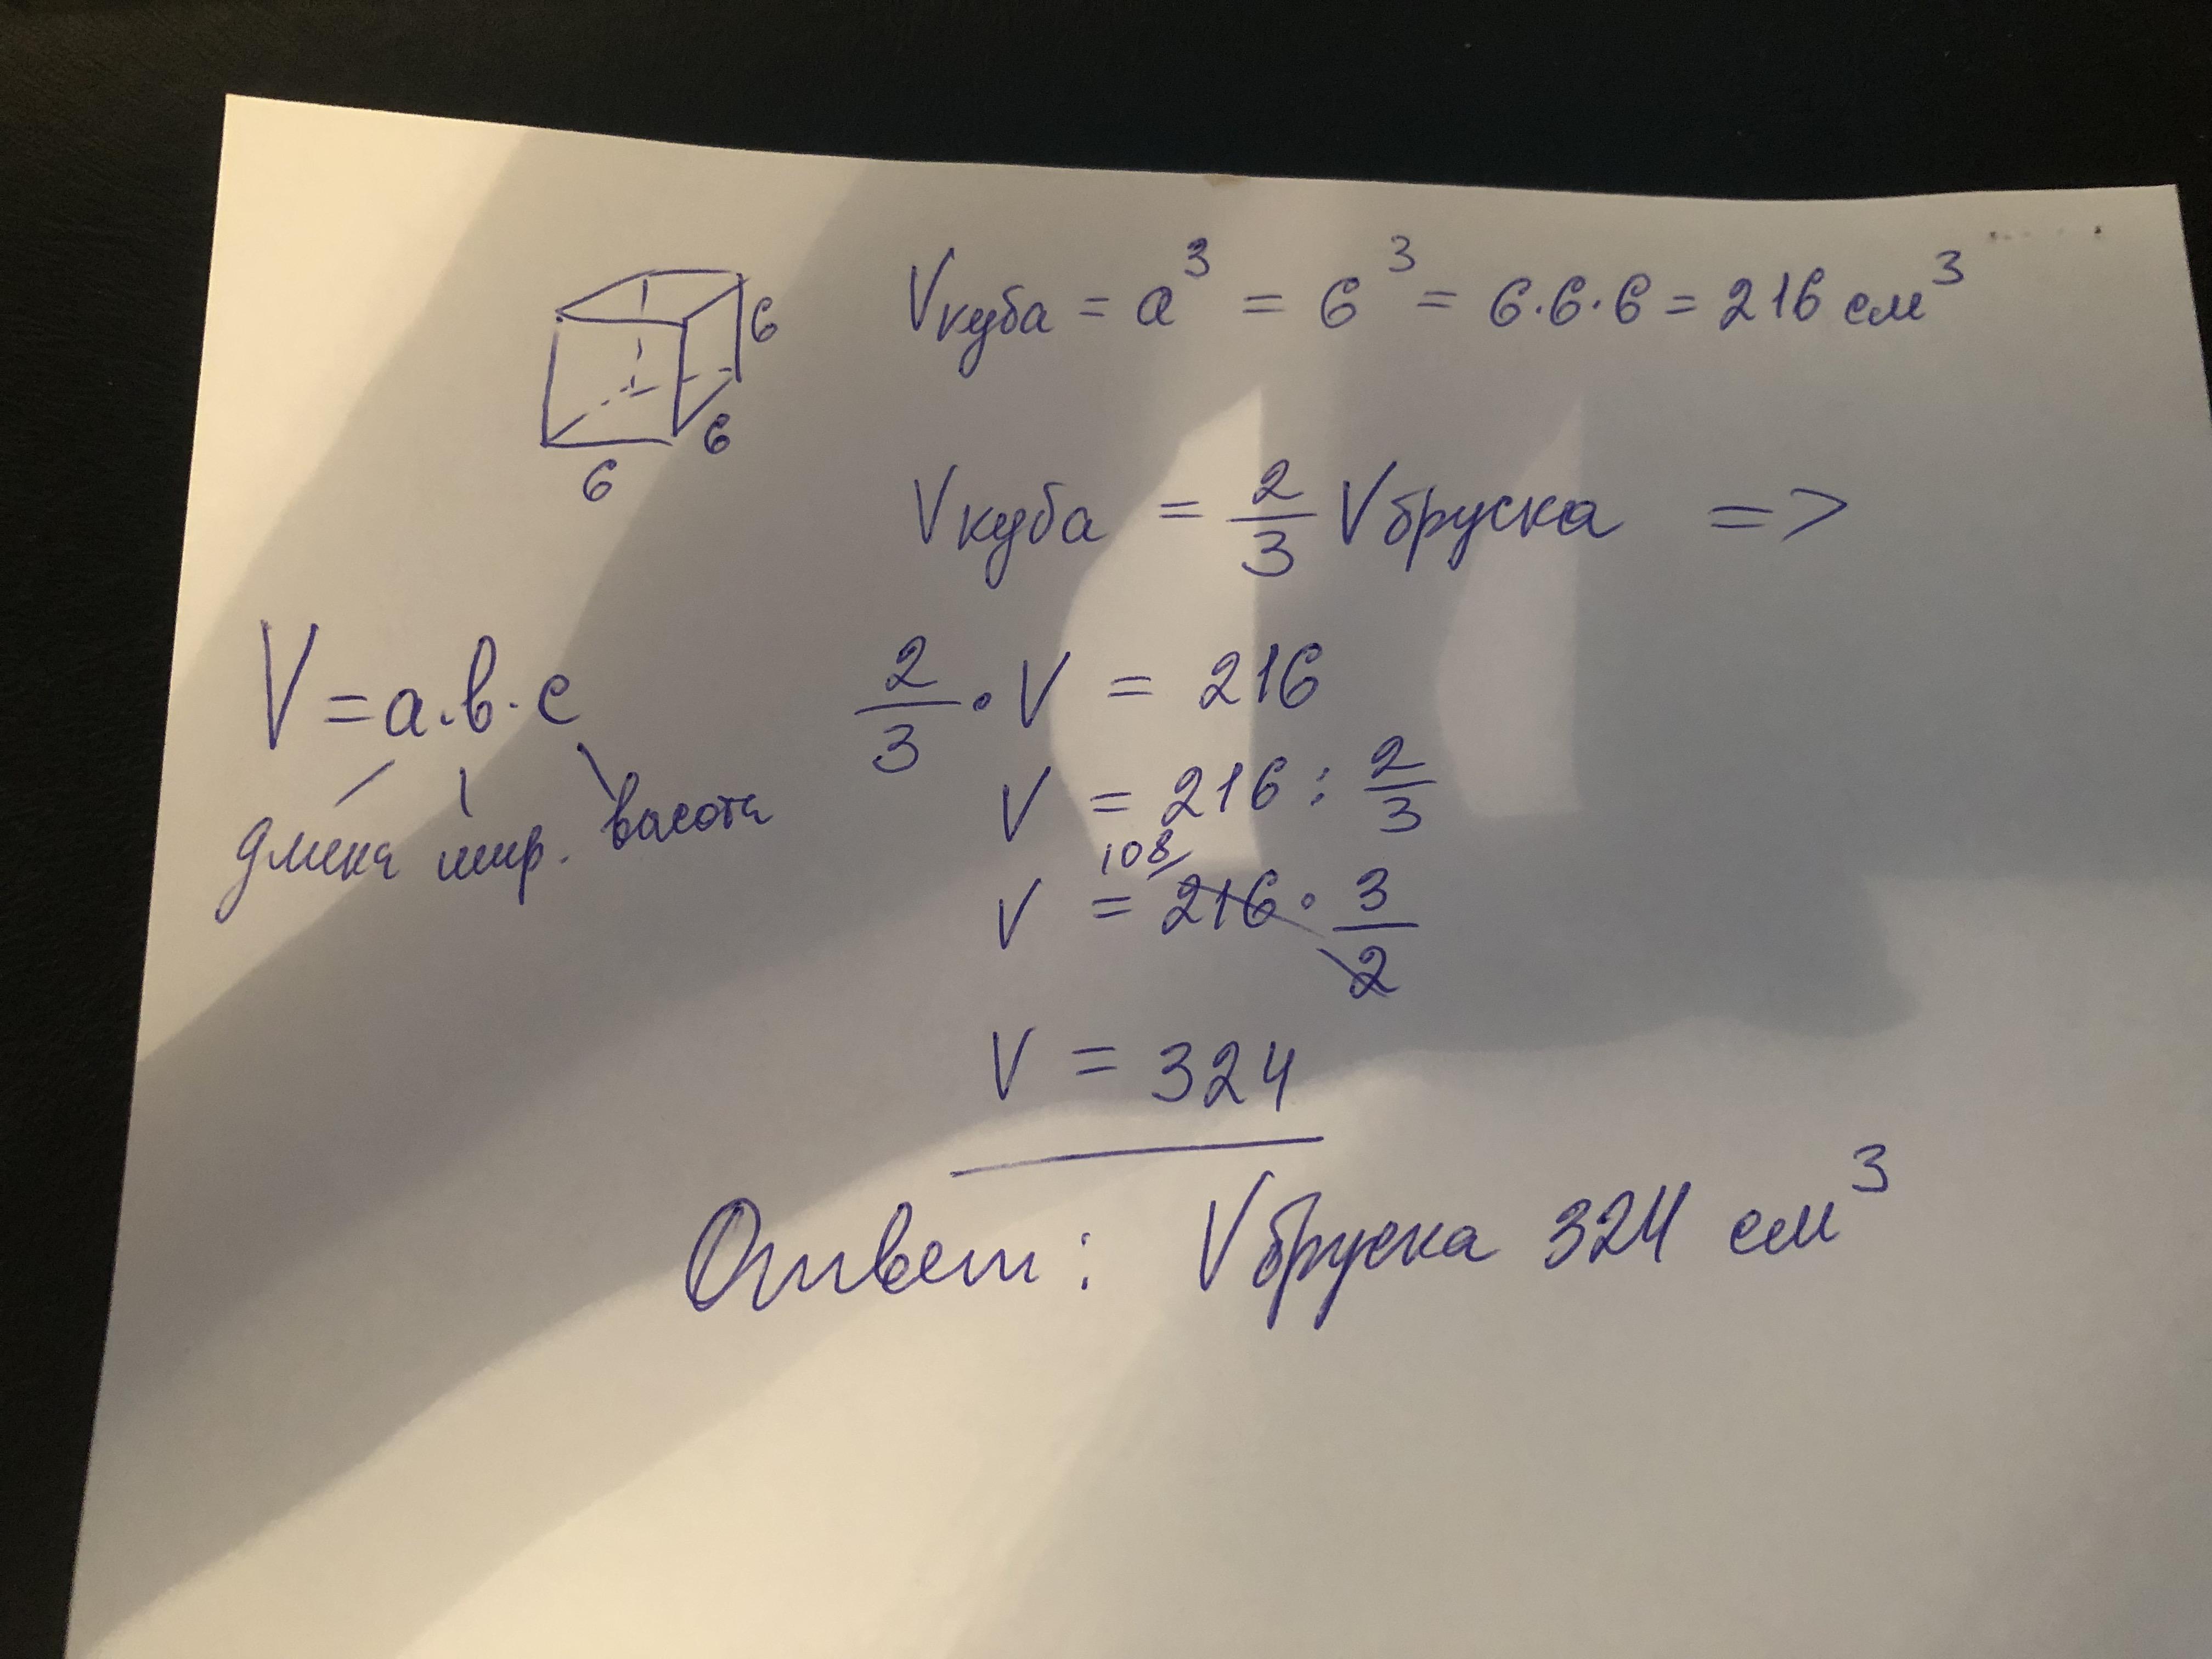 Vкуба = a³ = 6³ = 6·6·6 = 216 см³
6
6
6
Vкуба = 2/3 Vбруска =>
V = а·в·с
длина шир. высота
2/3 · V = 216
V = 216 : 2/3
108
V = 216 · 3/2
V = 324
Ответ: Vбруска 324 см³